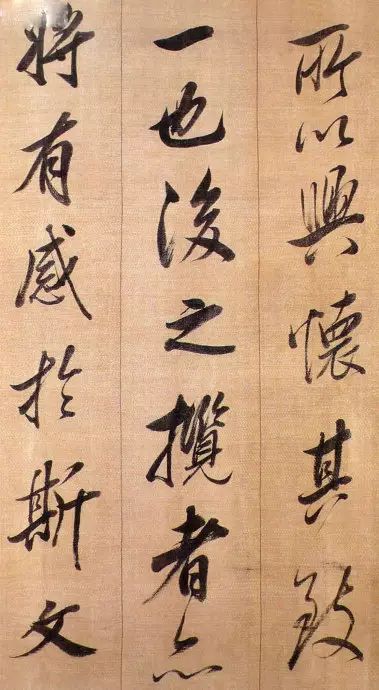 所以興懷其致
一也後之攬者亦
將有感於斯文